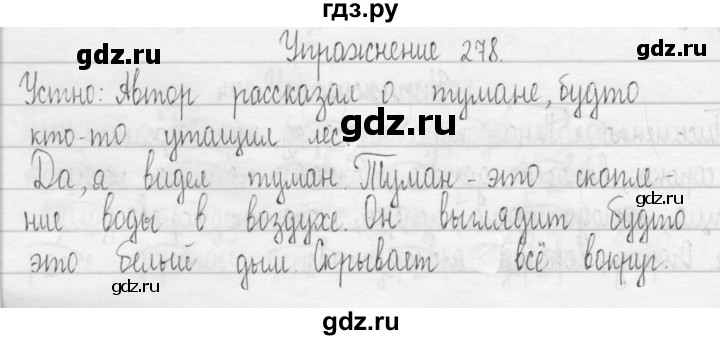 гдз.ру
Упражнение 278.
gdz.ru
gdz.ru
Устно: Автор рассказал о тумане, будто
gdz.ru
кто-то утащил лес.
Да, я видел туман. Туман - это скопле-
ние воды в воздухе. Он выглядит будто
это белый дым. Скрывает всё вокруг.
gdz.ru
gdz.ru
gdz.ru